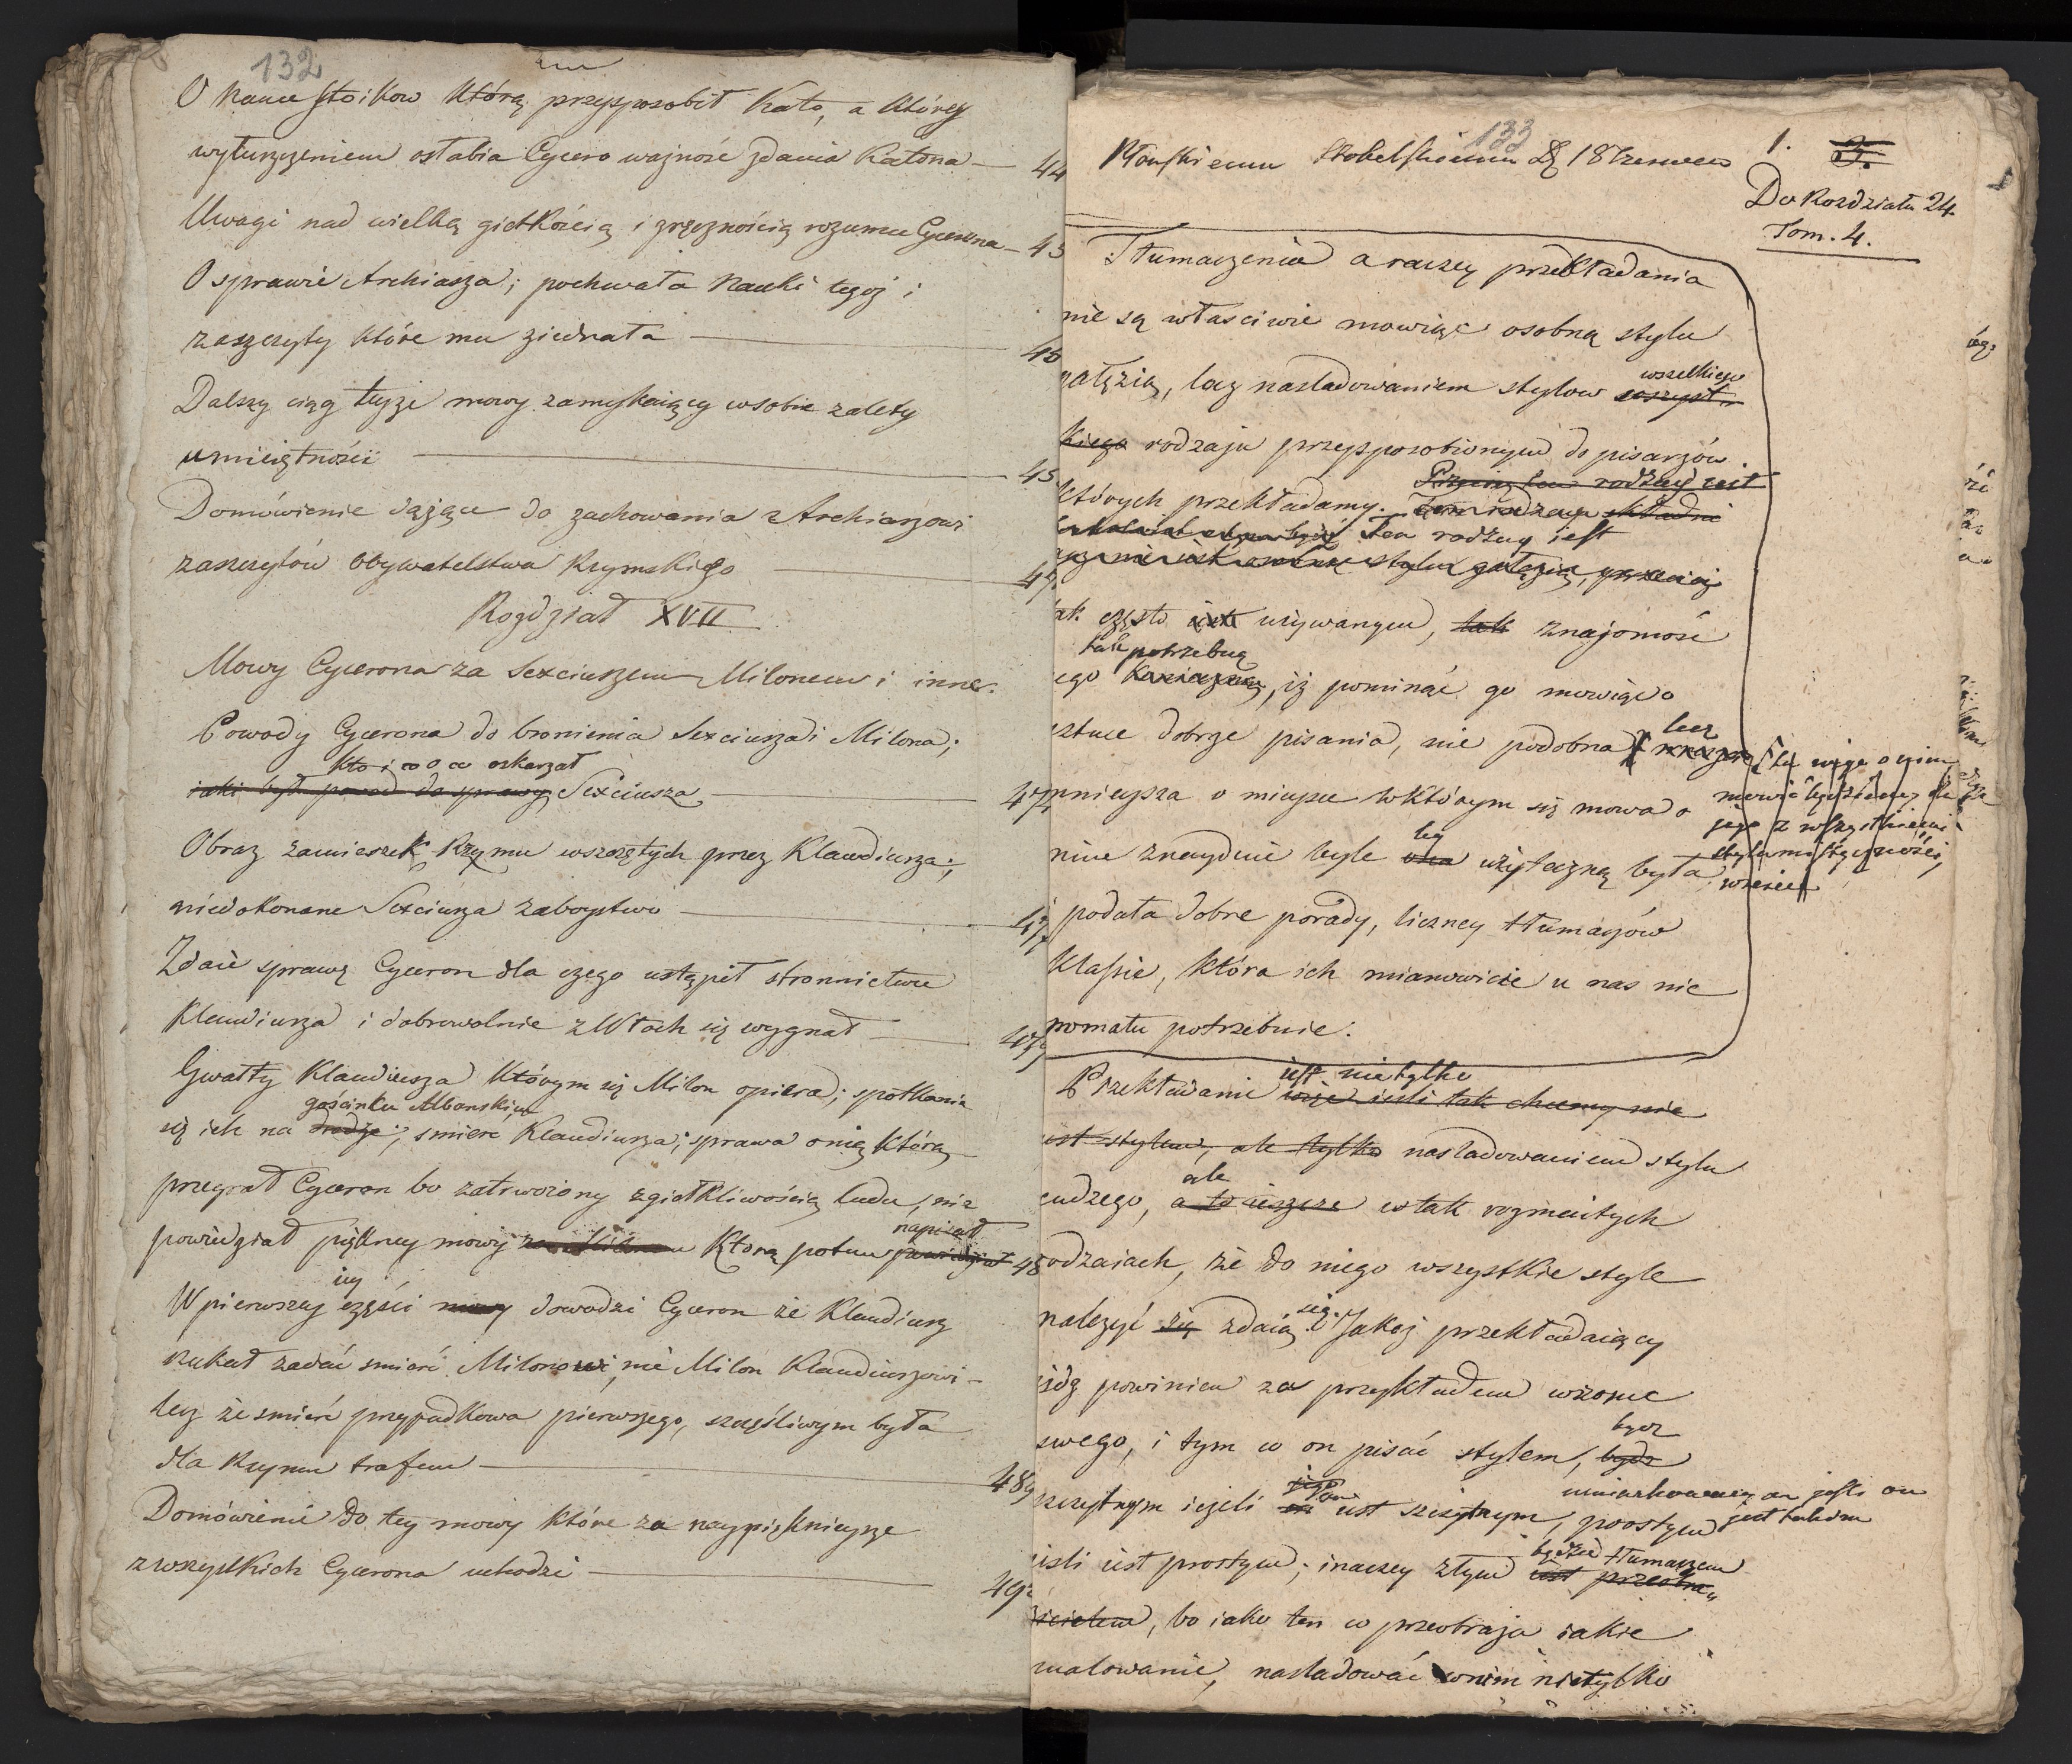 132
O Nauce Stoikow którą przysposobił Kato, a którey
wyłuszczeniem osłabia Cycero ważność zdania Katona — 44
Uwagi nad wielką giętkością i zręcznością rozumu Cycerona — 45
O sprawie Archiasza; pochwała Nauki tegoż i
zaszczyty które mu ziednała — 45
Dalszy ciąg teyże mowy zamykaiącey w sobie zalety
umieiętności — 45
Domówienie dążące do zachowania Archiaszowi
zaszczytów Obywatelstwa Rzymskiego —
Rozdział XVII
Mowy Cycerona za Sexciuszem Milonem i inne.
Powody Cycerona do bronienia Sexciusza i Milona;
kto i o co oskarżał
iaki był powod do sprawy Sexciusza — 47
Obraz zamieszek Rzymu wszczętych przez Klaudiusza;
niedokonane Sexciusza zaboystwo — 47
Zdaie sprawę Cyceron dla czego ustąpił stronnictwu
Klaudiusza i dobrowolnie z Włoch się wygnał — 47
Gwałty Klaudiusza którym się Milon opiera; spotkanie
gościńcu Albanskim
się ich na drodze; smierć Klaudiusza; sprawa o nię którą
przegrał Cyceron bo zatrwożony zgiełkliwością ludu, nie
napisał
powiedział piękney mowy którą potem powiedział 48
iey
W pierwszey części mowy dowodzi Cyceron że Klaudiusz
szukał zadać smierć Milonowi, nie Milon Klaudiuszowi —
lecz że smierć przypadkowa pierwszego, szczęśliwym była
dla Rzymu trafem — 48
Domówienie do tey mowy które za naypięknieysze
z wszystkich Cycerona uchodzi — 49
133
18 Czerwca
1. 3.
Do Rozdziału 24.
Tom. 4.
Tłumaczenia a raczey przekładania
nie są właściwie mowiąc osobną stylu
gałęzią, lecz nasladowaniem stylow wszelkiego wszyst-
kiego rodzaju przysposobionym do pisarzów
których przekładamy.
Ten rodzay iest
tak często iest używanym, tak znajomość
tak potrzebną
iego, iż pominąć go mowiąc o
sztuce dobrze pisania, nie podobna lecz
mnieysza o mieysce w którym się mowa o
nim znaydzie byle ona użyteczną była
i podała dobre porady, liczney tłumaczów
klassie, która ich mianowicie u nas nie
pomału potrzebuie.
iest nietylko
Przekładanie więc iesli tak chcemy nie
iest stylem, ale tylko nasladowaniem stylu
ale
cudzego, a to ieszcze w tak rozmaitych
rodzaiach, że do niego wszystkie style
należyć się zdaią się. Jakoż przekładaiący
iśdź powinien za przykładem wzoru
swego, i tym co on pisać stylem, bydź
umiarkowanym jeśli on
jest takim
szczytnym ieżeli on iest szczytnym, prostym
będzie tłumaczem
iesli iest prostym; inaczey złym iest
bo iako ten co przeobraża iakie
malowanie, nasladować w nim nietylko